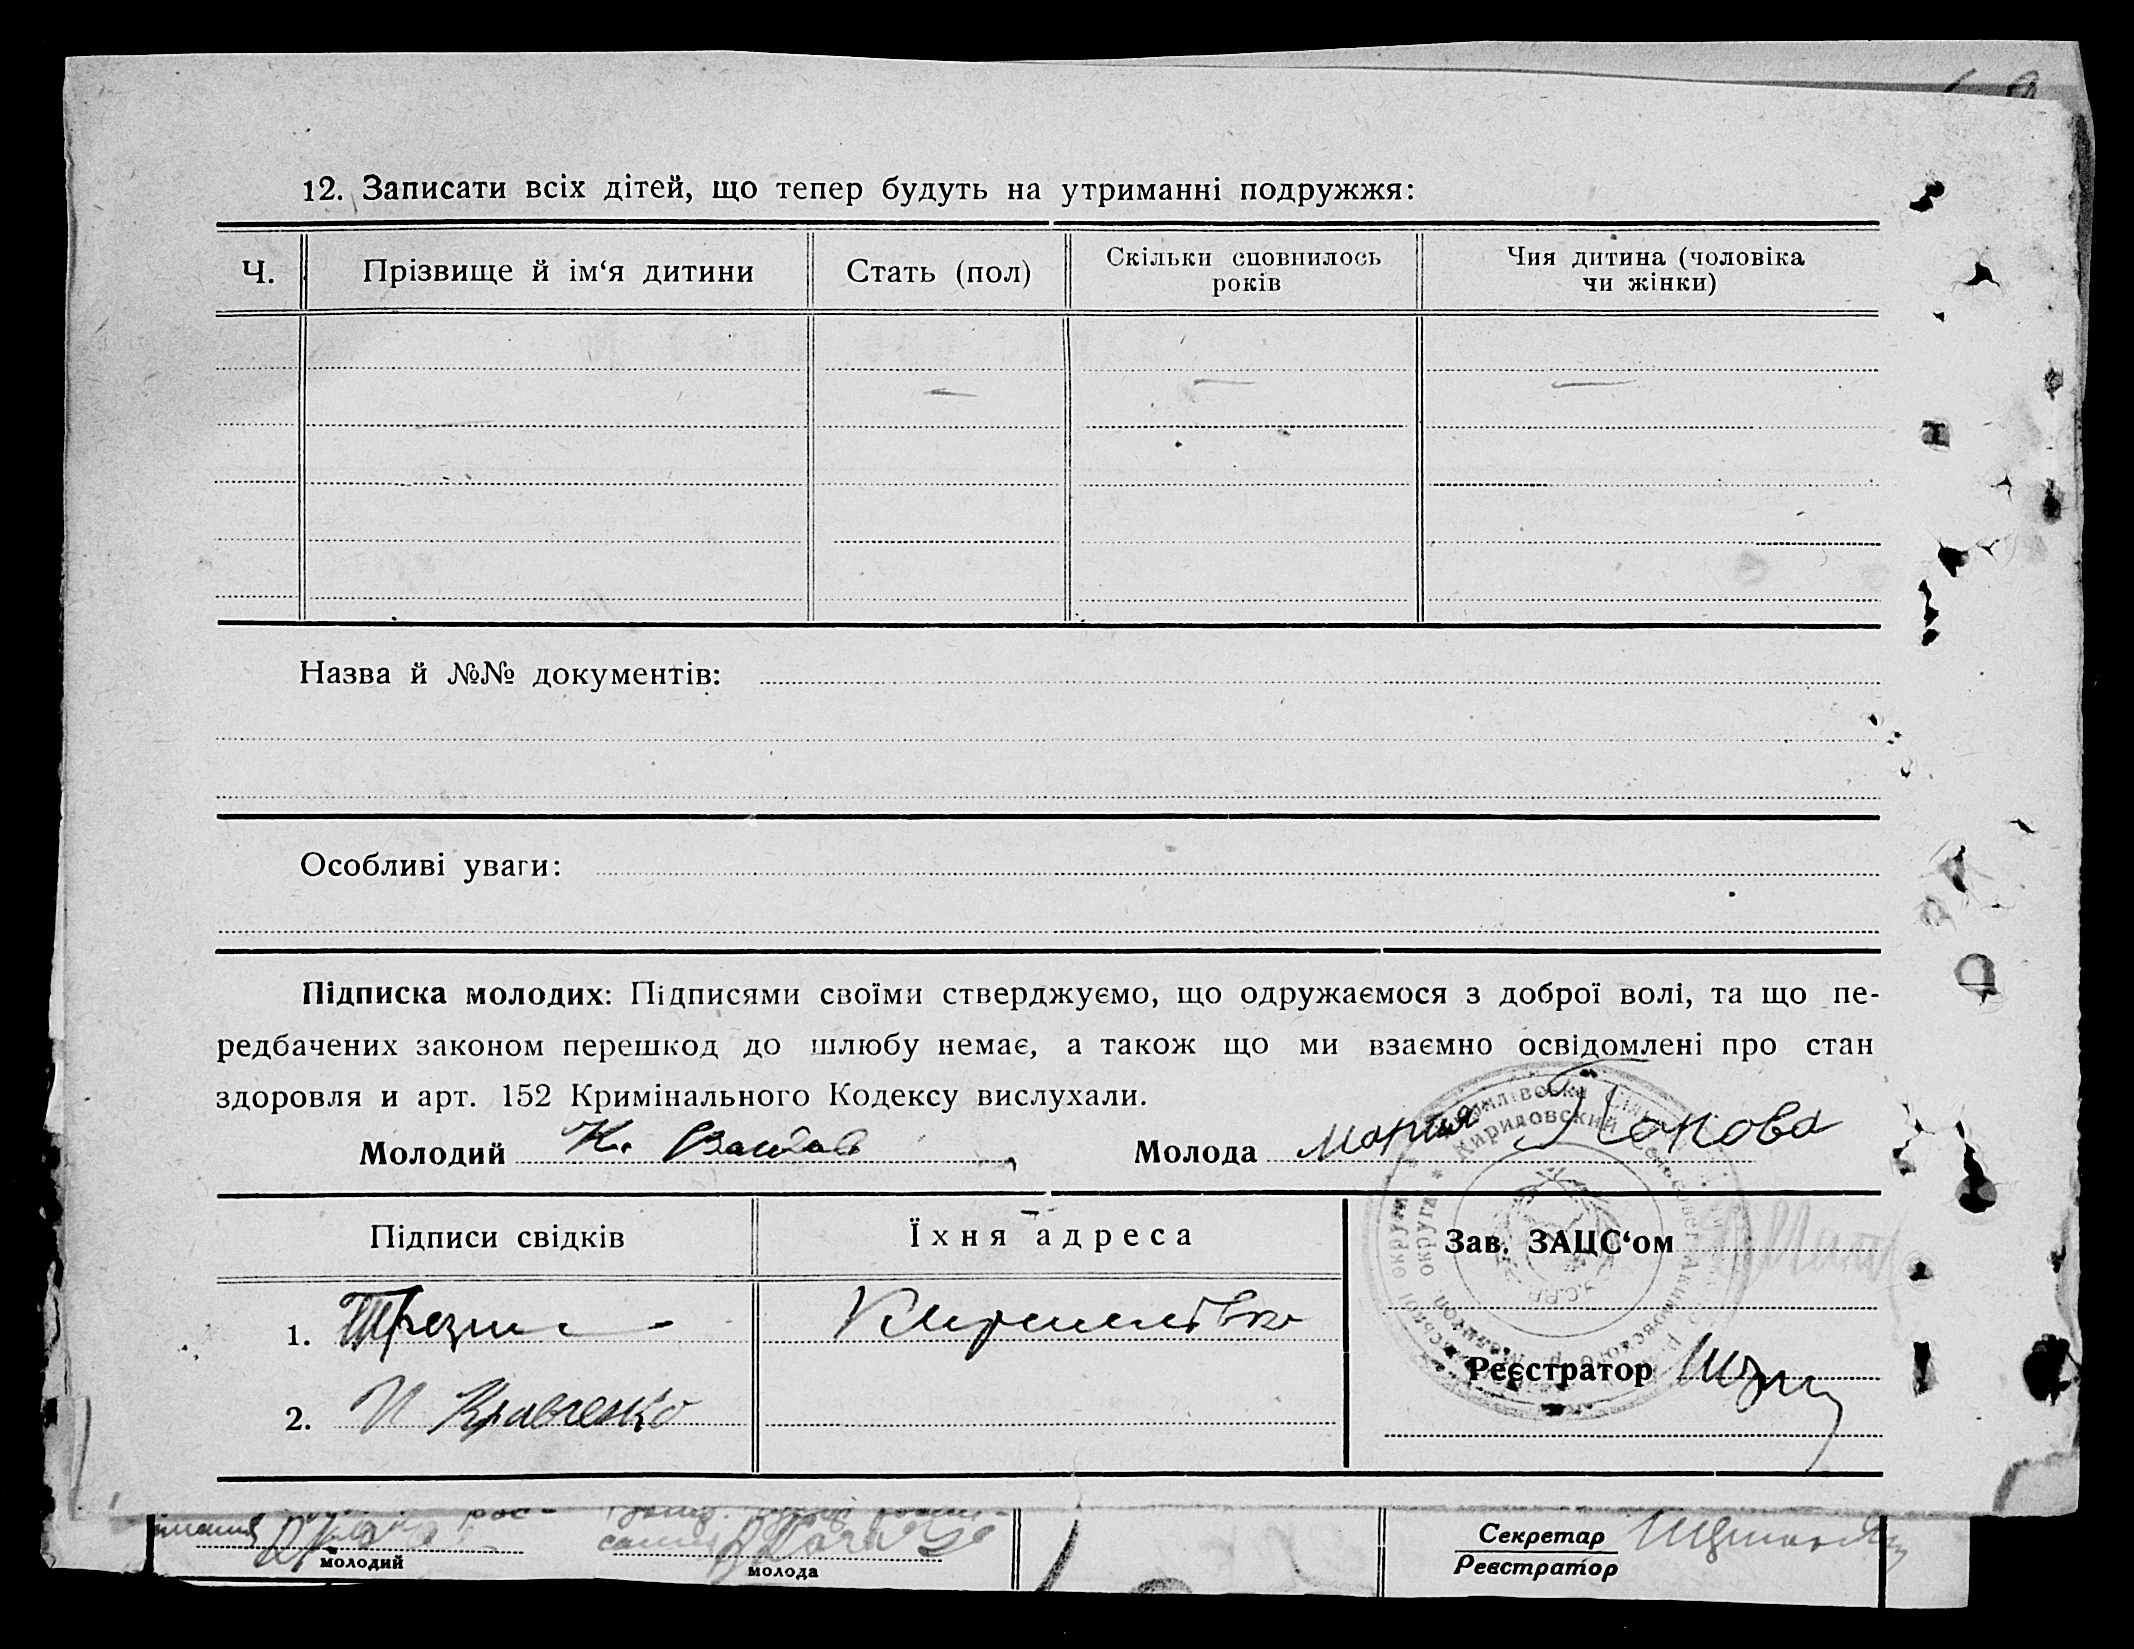 12. Записати всіх дітей, що тепер будуть на утриманні подружжя:
Ч.
Прізвище й ім‘я дитини
Стать (пол)
Скільки сповнилось
років
Чия дитина (чоловіка
чи жінки)
Назва й №№ документів:
Особливі уваги:
Підписка молодих: Підписями своїми стверджуємо, що одружаємося з доброї волі, та що пе-
редбачених законом перешкод до шлюбу немає, а також що ми взаємно освідомлені про стан
здоровля и арт. 152 Кримінального Кодексу вислухали.
Молодий К.
Молода Мария Попова
Підписи свідків
Їхня адреса
Зав. ЗАЦС‘ом
1.
Кирилівка
Реєстратор
2. И Кравченко
молодий
молода
Секретар
Реєстратор